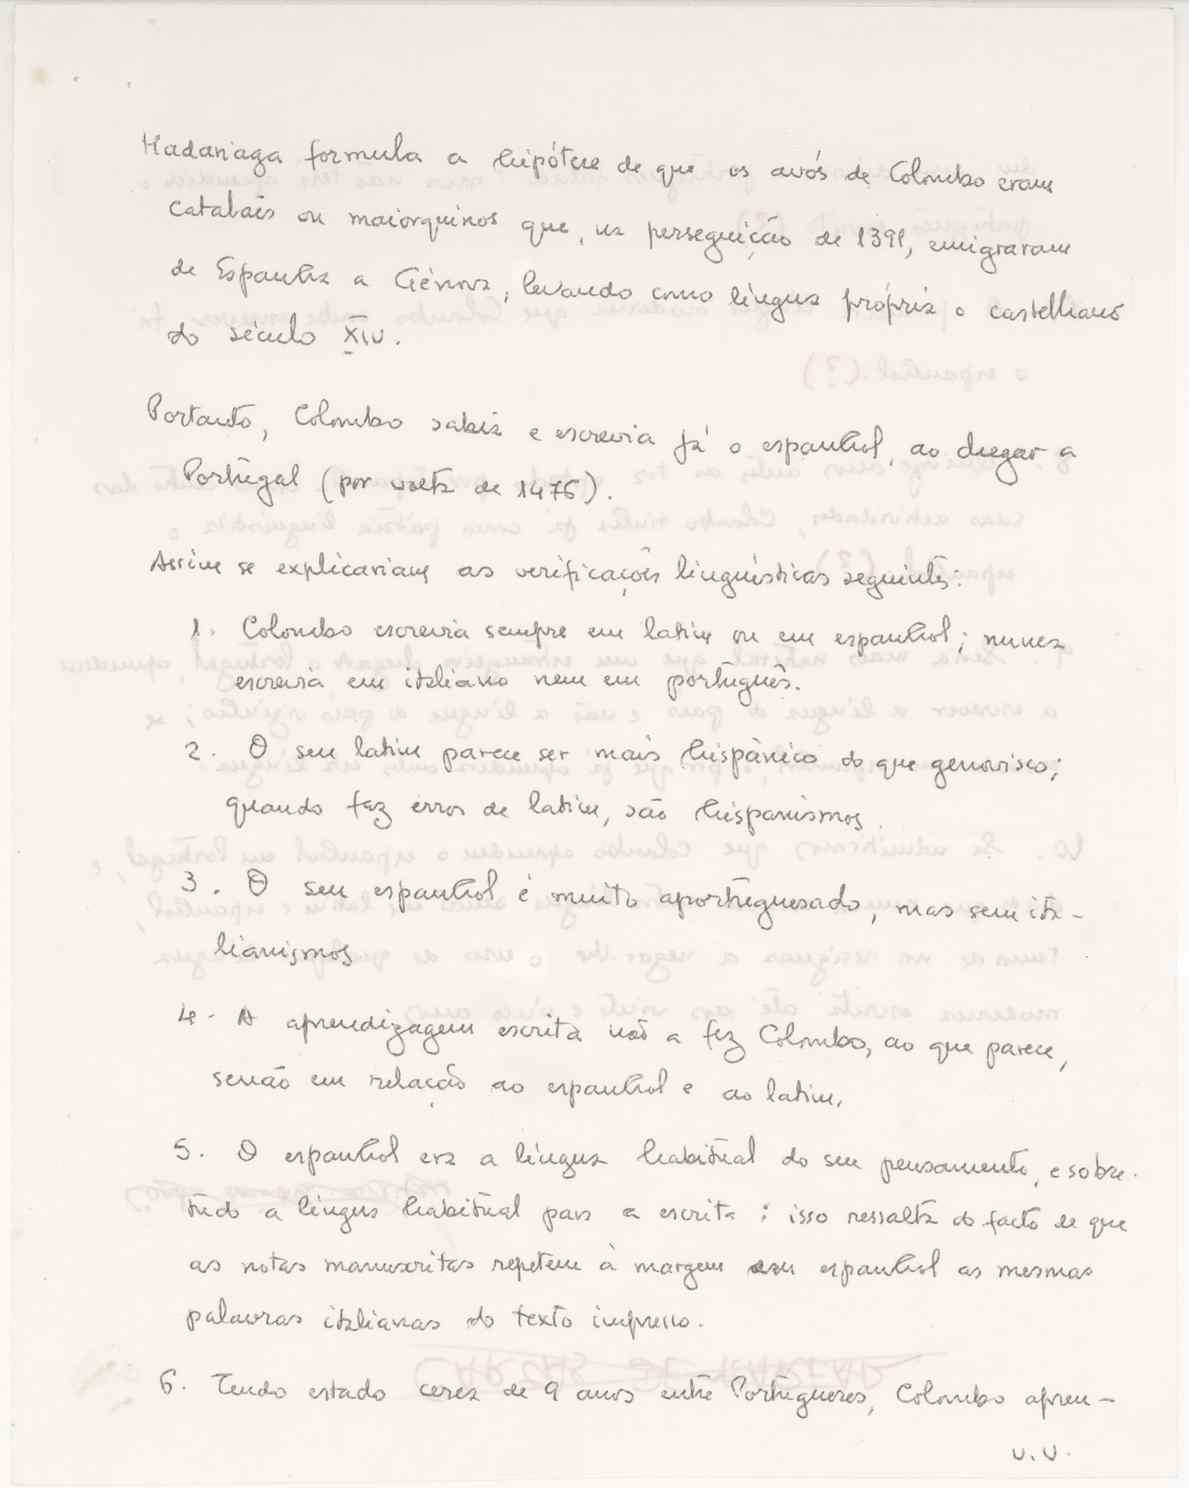 Madariaga formula a hipótese de que os avós de Colombo eram
catalães ou maiorquinos que, na perseguição de 1391, emigraram
de Espanha a Génova, levando como língua própria o castelhano
do século XIV.
Portanto, Colombo sabia e escrevia já o espanhol, ao chegar a
Portugal (por volta de 1476).
Assim se explicariam as verificações linguísticas seguintes:
1. Colombo escrevia sempre em latim ou em espanhol; nunca
escrevia em italiano nem em português.
2. O seu latim parece ser mais hispânico do que genovisco;
quando faz erros de latim, são hispanismos.
3. O seu espanhol é muito aportuguesado, mas sem ita-
lianismos
4. A aprendizagem escrita não a fez Colombo, ao que parece,
senão em relação ao espanhol e ao latim.
5. O espanhol era a língua habitual do seu pensamento, e sobre-
tudo a língua habitual para a escrita: isso ressalta do facto de que
as notas manuscritas repetem à margem em espanhol as mesmas
palavras italianas do texto impresso.
6. Tendo estado cerca de 9 anos entre Portugueses, Colombo apren-
v.v.